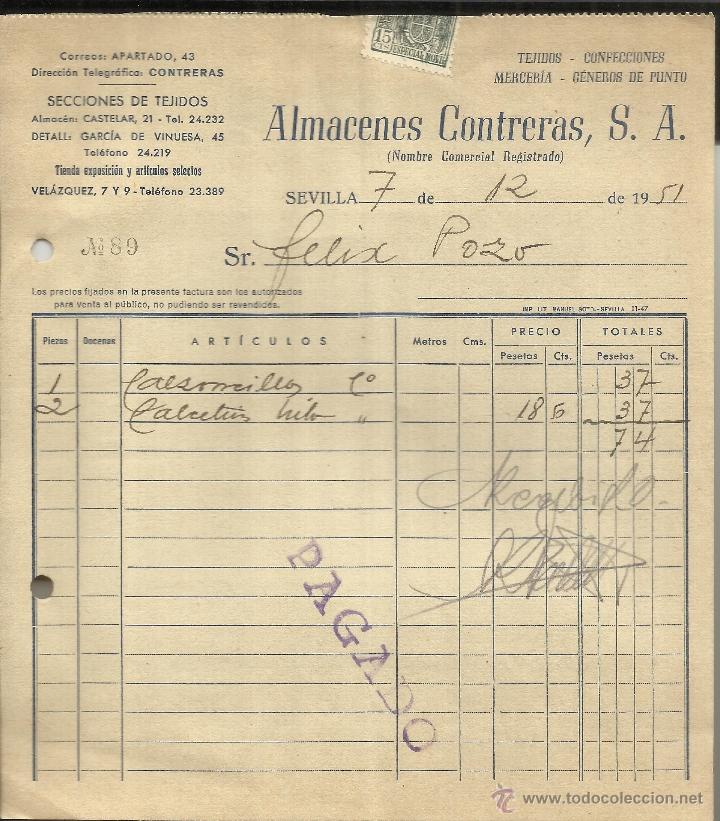 15
CTS
ESPECIAL MOVIL
Correos: APARTADO, 43
Dirección Telegráfica: CONTRERAS
SECCIONES DE TEJIDOS
Almacén: CASTELAR, 21 - Tel. 24.232
DETALL: GARCÍA DE VINUESA, 45
Teléfono 24.219
Tienda exposición y artículos selectos
VELÁZQUEZ, 7 Y 9 - Teléfono 23.389
TEJIDOS - CONFECCIONES
MERCERÍA - GÉNEROS DE PUNTO
Almacenes Contreras, S. A.
(Nombre Comercial Registrado)
SEVILLA 7 de 12 de 1951
Nº 89
Sr. Felix Pozo
Los precios fijados en la presente factura son los autorizados
para venta al público, no pudiendo ser revendidos.
IMP. LIT. MANUEL SOTO.-SEVILLA 11-47
Piezas Docenas ARTÍCULOS Metros Cms. PRECIO TOTALES
Pesetas Cts. Pesetas Cts.
1 Calsoncillos Cº 37
2 Calcetin hilo " 18 5 37
74
PAGADO
www.todocoleccion.net